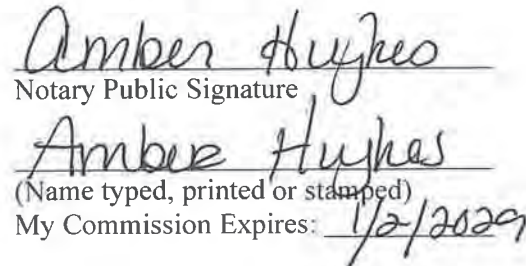 Amber Hughes
Notary Public Signature
Amber Hughes
(Name typed, printed or stamped)
My Commission Expires: 1/2/2029